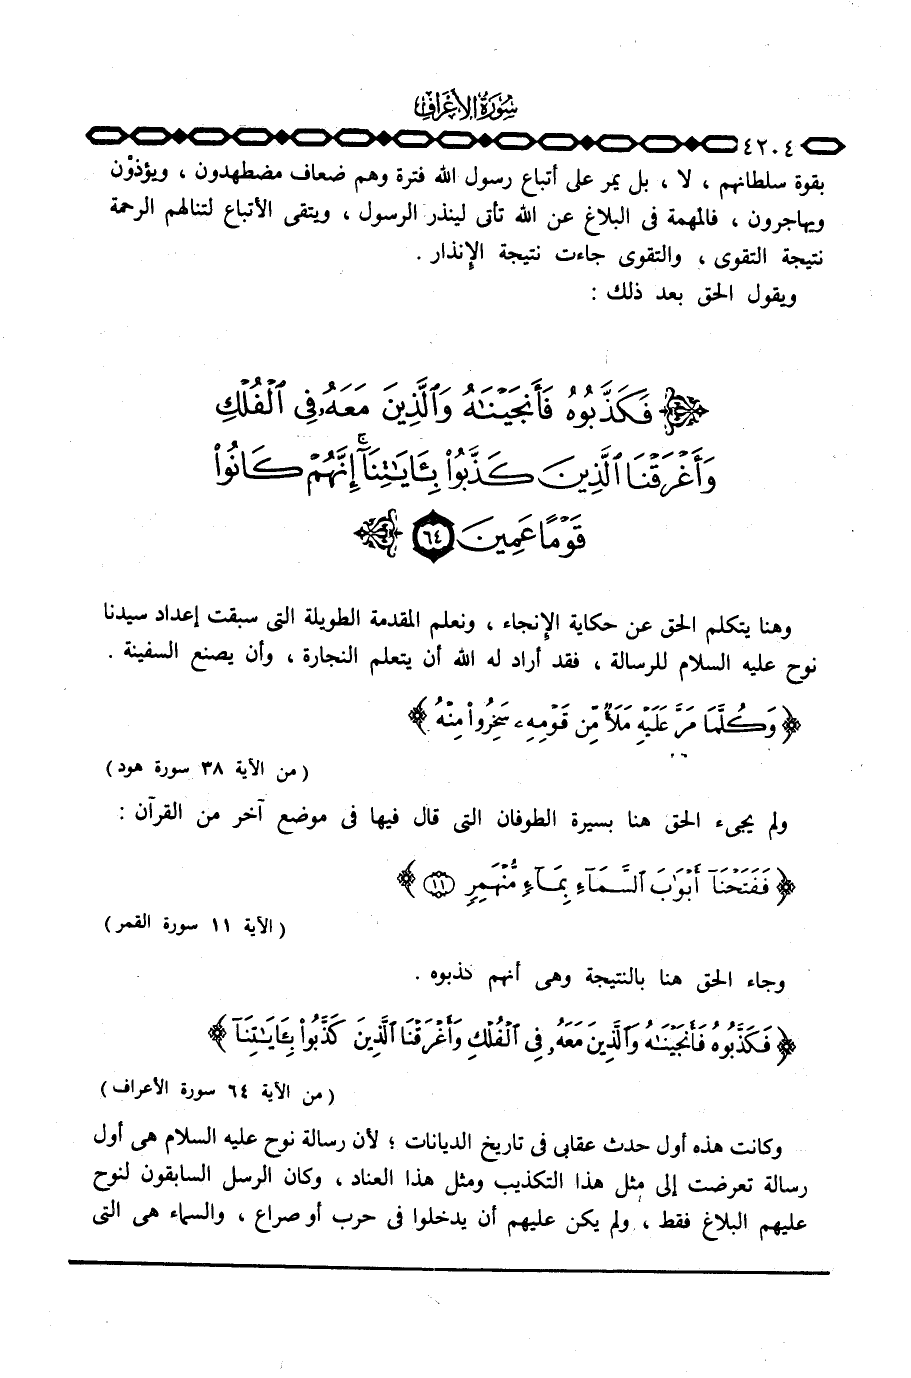 سُورَةُ الأَعْرَافِ
٤٢٠٤
بقوة سلطانهم ، لا ، بل يمر على أتباع رسول الله فترة وهم ضعاف مضطهدون ، ويؤذوْن
ويهاجرون ، فالمهمة فى البلاغ عن الله تأتى لينذر الرسول ، ويتقى الأتباع لتنالهم الرحمة
نتيجة التقوى ، والتقوى جاءت نتيجة الإنذار .
ويقول الحق بعد ذلك :
فَكَذَّبُوهُ فَأَنجَيْنَٰهُ وَٱلَّذِينَ مَعَهُۥ فِى ٱلْفُلْكِ
وَأَغْرَقْنَا ٱلَّذِينَ كَذَّبُوا۟ بِـَٔايَٰتِنَآ ۚ إِنَّهُمْ كَانُوا۟
قَوْمًا عَمِينَ ٦٤
وهنا يتكلم الحق عن حكاية الإنجاء ، ونعلم المقدمة الطويلة التى سبقت إعداد سيدنا
نوح عليه السلام للرسالة ، فقد أراد له الله أن يتعلم النجارة ، وأن يصنع السفينة .
﴿ وَكُلَّمَا مَرَّ عَلَيْهِ مَلَأٌ مِّن قَوْمِهِۦ سَخِرُوا۟ مِنْهُ ﴾
( من الآية ٣٨ سورة هود )
ولم يجىء الحق هنا بسيرة الطوفان التى قال فيها فى موضع آخر من القرآن :
﴿ فَفَتَحْنَآ أَبْوَٰبَ ٱلسَّمَآءِ بِمَآءٍ مُّنْهَمِرٍ ١١ ﴾
( الآية ١١ سورة القمر )
وجاء الحق هنا بالنتيجة وهى أنهم كذبوه .
﴿ فَكَذَّبُوهُ فَأَنجَيْنَٰهُ وَٱلَّذِينَ مَعَهُۥ فِى ٱلْفُلْكِ وَأَغْرَقْنَا ٱلَّذِينَ كَذَّبُوا۟ بِـَٔايَٰتِنَآ ﴾
( من الآية ٦٤ سورة الأعراف )
وكانت هذه أول حدث عقابى فى تاريخ الديانات ؛ لأن رسالة نوح عليه السلام هى أول
رسالة تعرضت إلى مثل هذا التكذيب ومثل هذا العناد ، وكان الرسل السابقون لنوح
عليهم البلاغ فقط ، ولم يكن عليهم أن يدخلوا فى حرب أو صراع ، والسماء هى التى